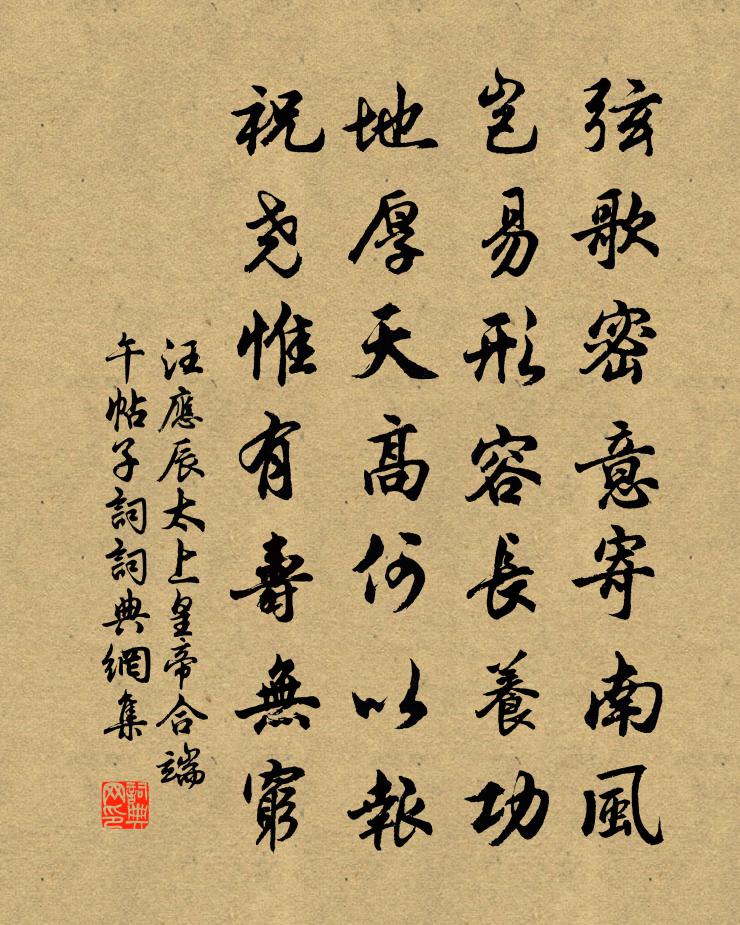 弦歌密意寄南風
豈易形容長養功
地厚天高何以報
祝尧惟有壽無窮
汪應辰太上皇帝合端
午帖子詞詞典網集
詞典網印